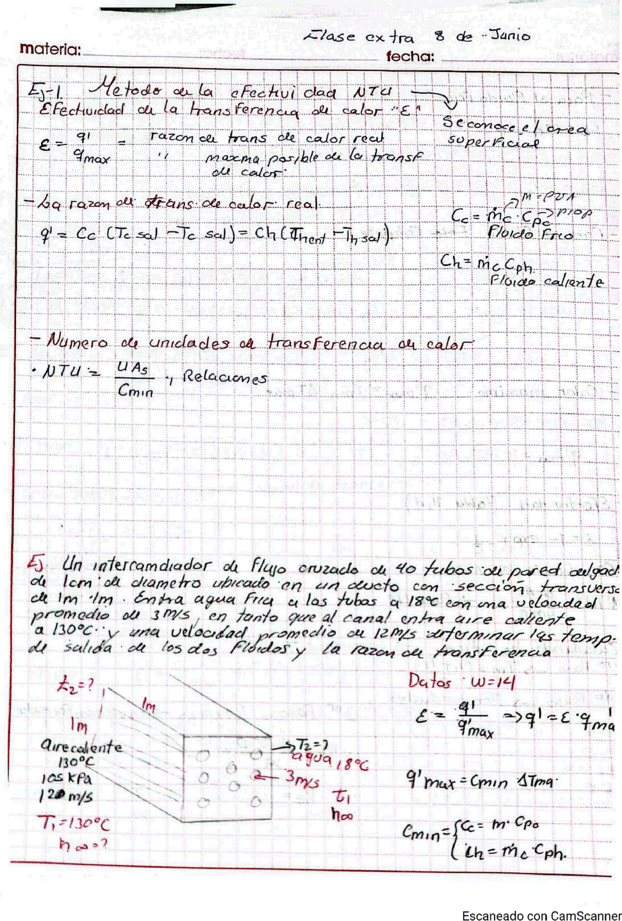 Clase extra 8 de Junio
materia:
fecha:
Ej-1 Metodo de la efectividad NTU
Efectividad de la transferencia de calor "ε"
Se conoce el area
superficial
ε = q' / q max = razon de trans de calor real
" maxma posible de la transf
de calor.
- La razon de trans de calor real
ṁ = ρVA
Cc = ṁc · Cpc → prop
Fluido Frio
q' = Cc (Tc sal - Tc sal) = Ch (Th ent - Th sal).
Ch = ṁc Cph.
Fluido caliente
- Numero de unidades de transferencia de calor
· NTU = UAs / Cmin ., Relaciones
Ej Un intercamdiador de flujo cruzado de 40 tubos de pared delgad
de 1cm de diametro ubicado en un ducto con sección transversa
de 1m · 1m. Entra agua Fria a los tubas a 18°C con una velocidad
promedio de 3m/s, en tanto que al canal entra aire caliente
a 130°C y una velocidad promedio de 12m/s determinar las temp.
de salida de los dos Fluidos y la razon de transferencia
Datos W=14
t2=?
1m
ε = q' / q'max => q' = ε · q'ma
1m
Aire caliente
130°C
105 kPa
12 m/s
T1=130°C
h∞=?
T2=?
agua 18°C
3m/s
t1
h∞
q'max = Cmin ΔTma·
Cmin = { Cc = m· Cpc
Ch = ṁc Cph.
Escaneado con CamScanner